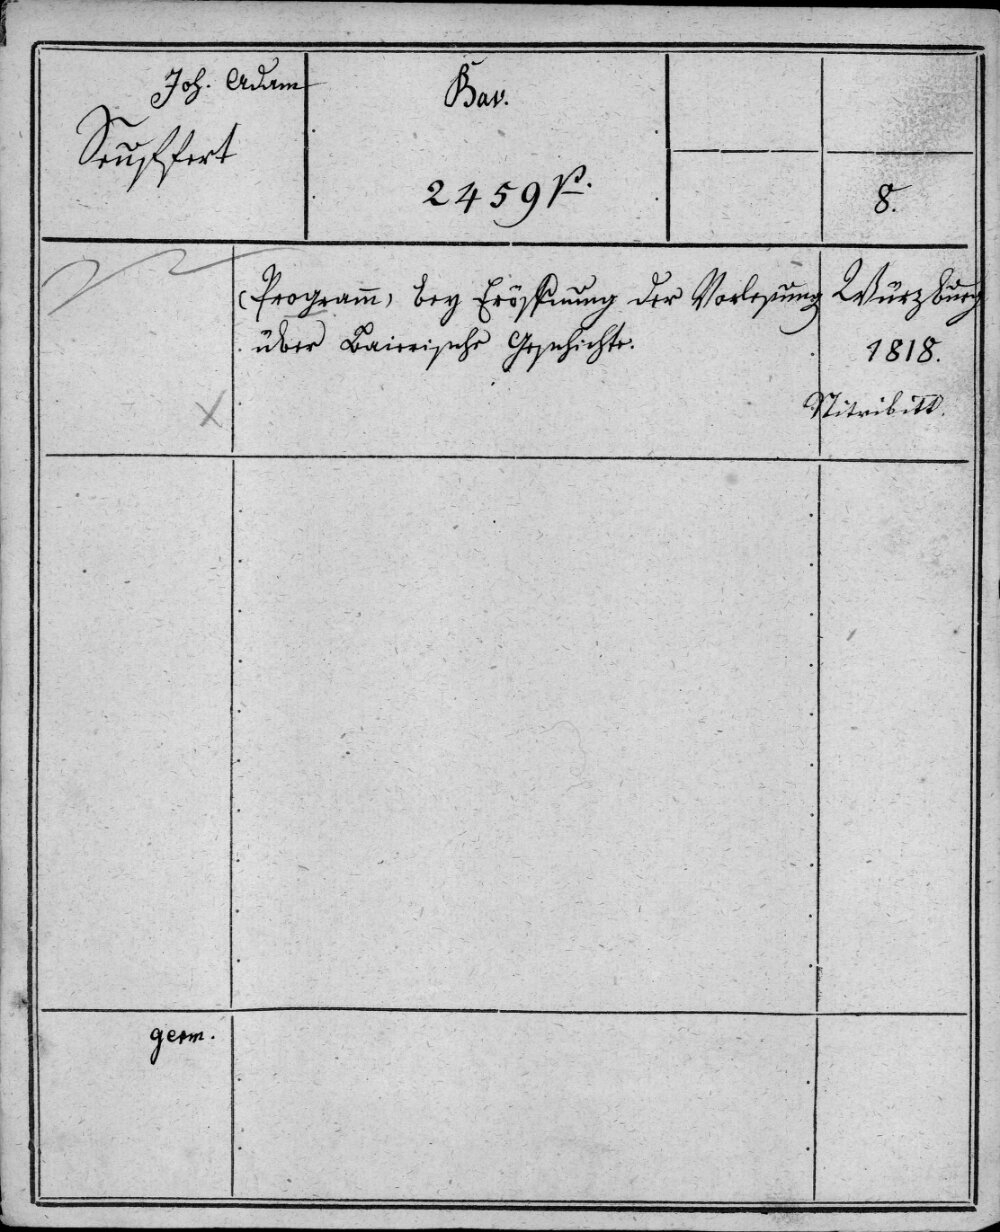 Joh. Adam
Seuffert
Bav.
2459 p.
8.
(Programm) bey Eröffnung der Vorlesung
über Bairische Geschichte.
Würzburg
1818.
Nitribitt.
germ.